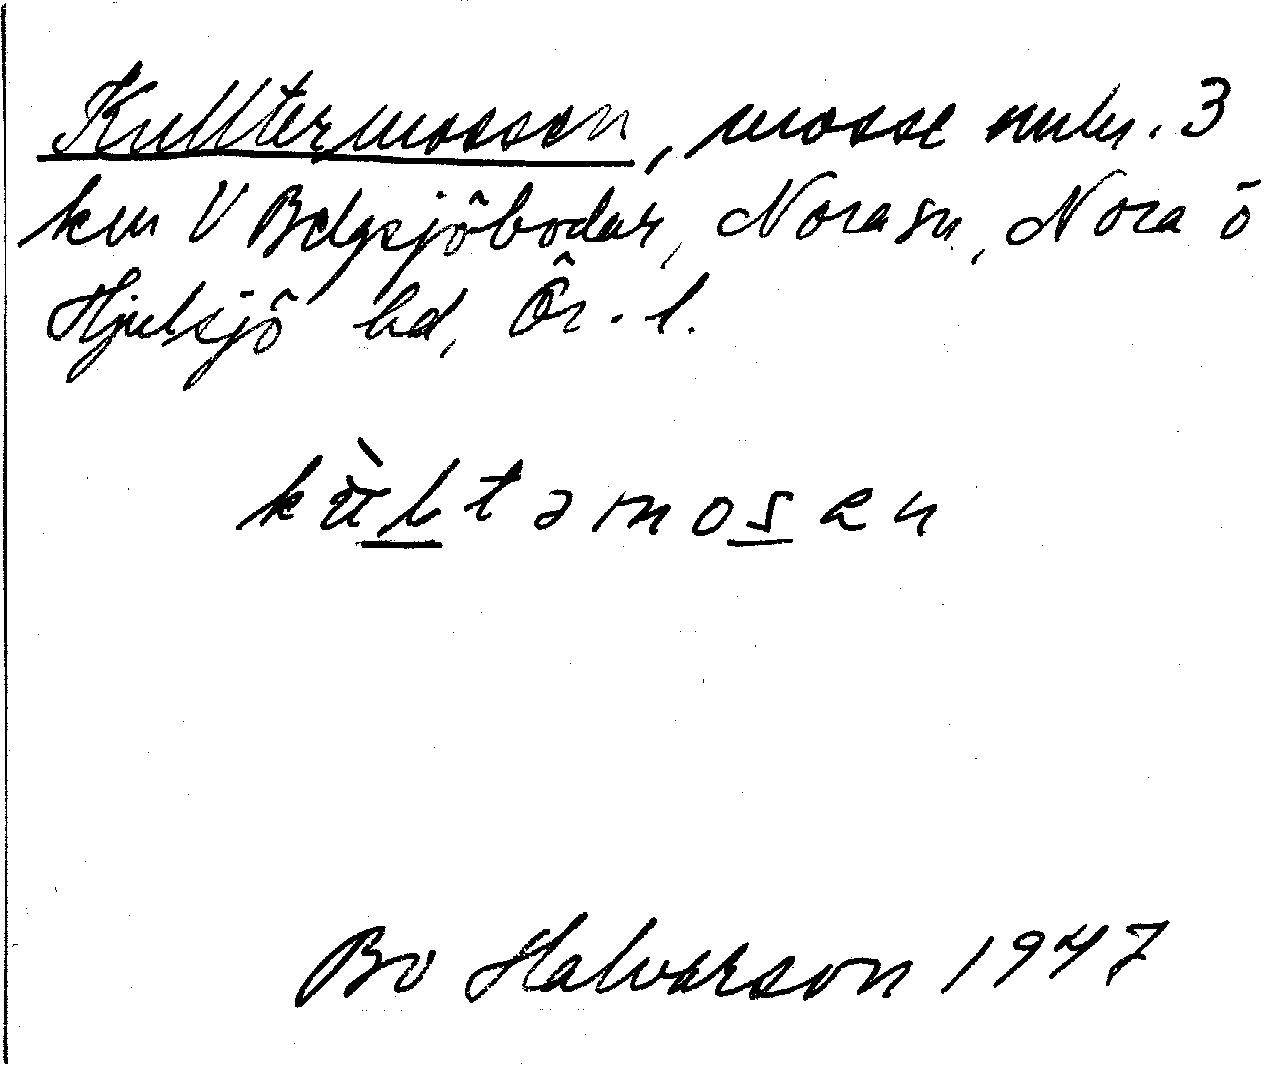 Kulltermossen, mosse omkr. 3
km V Bdgsjöbodar, Nora sn, Nora o
Hjulsjö bd, Ör. l.
kùltəmosen
Bo Halvarson 1947